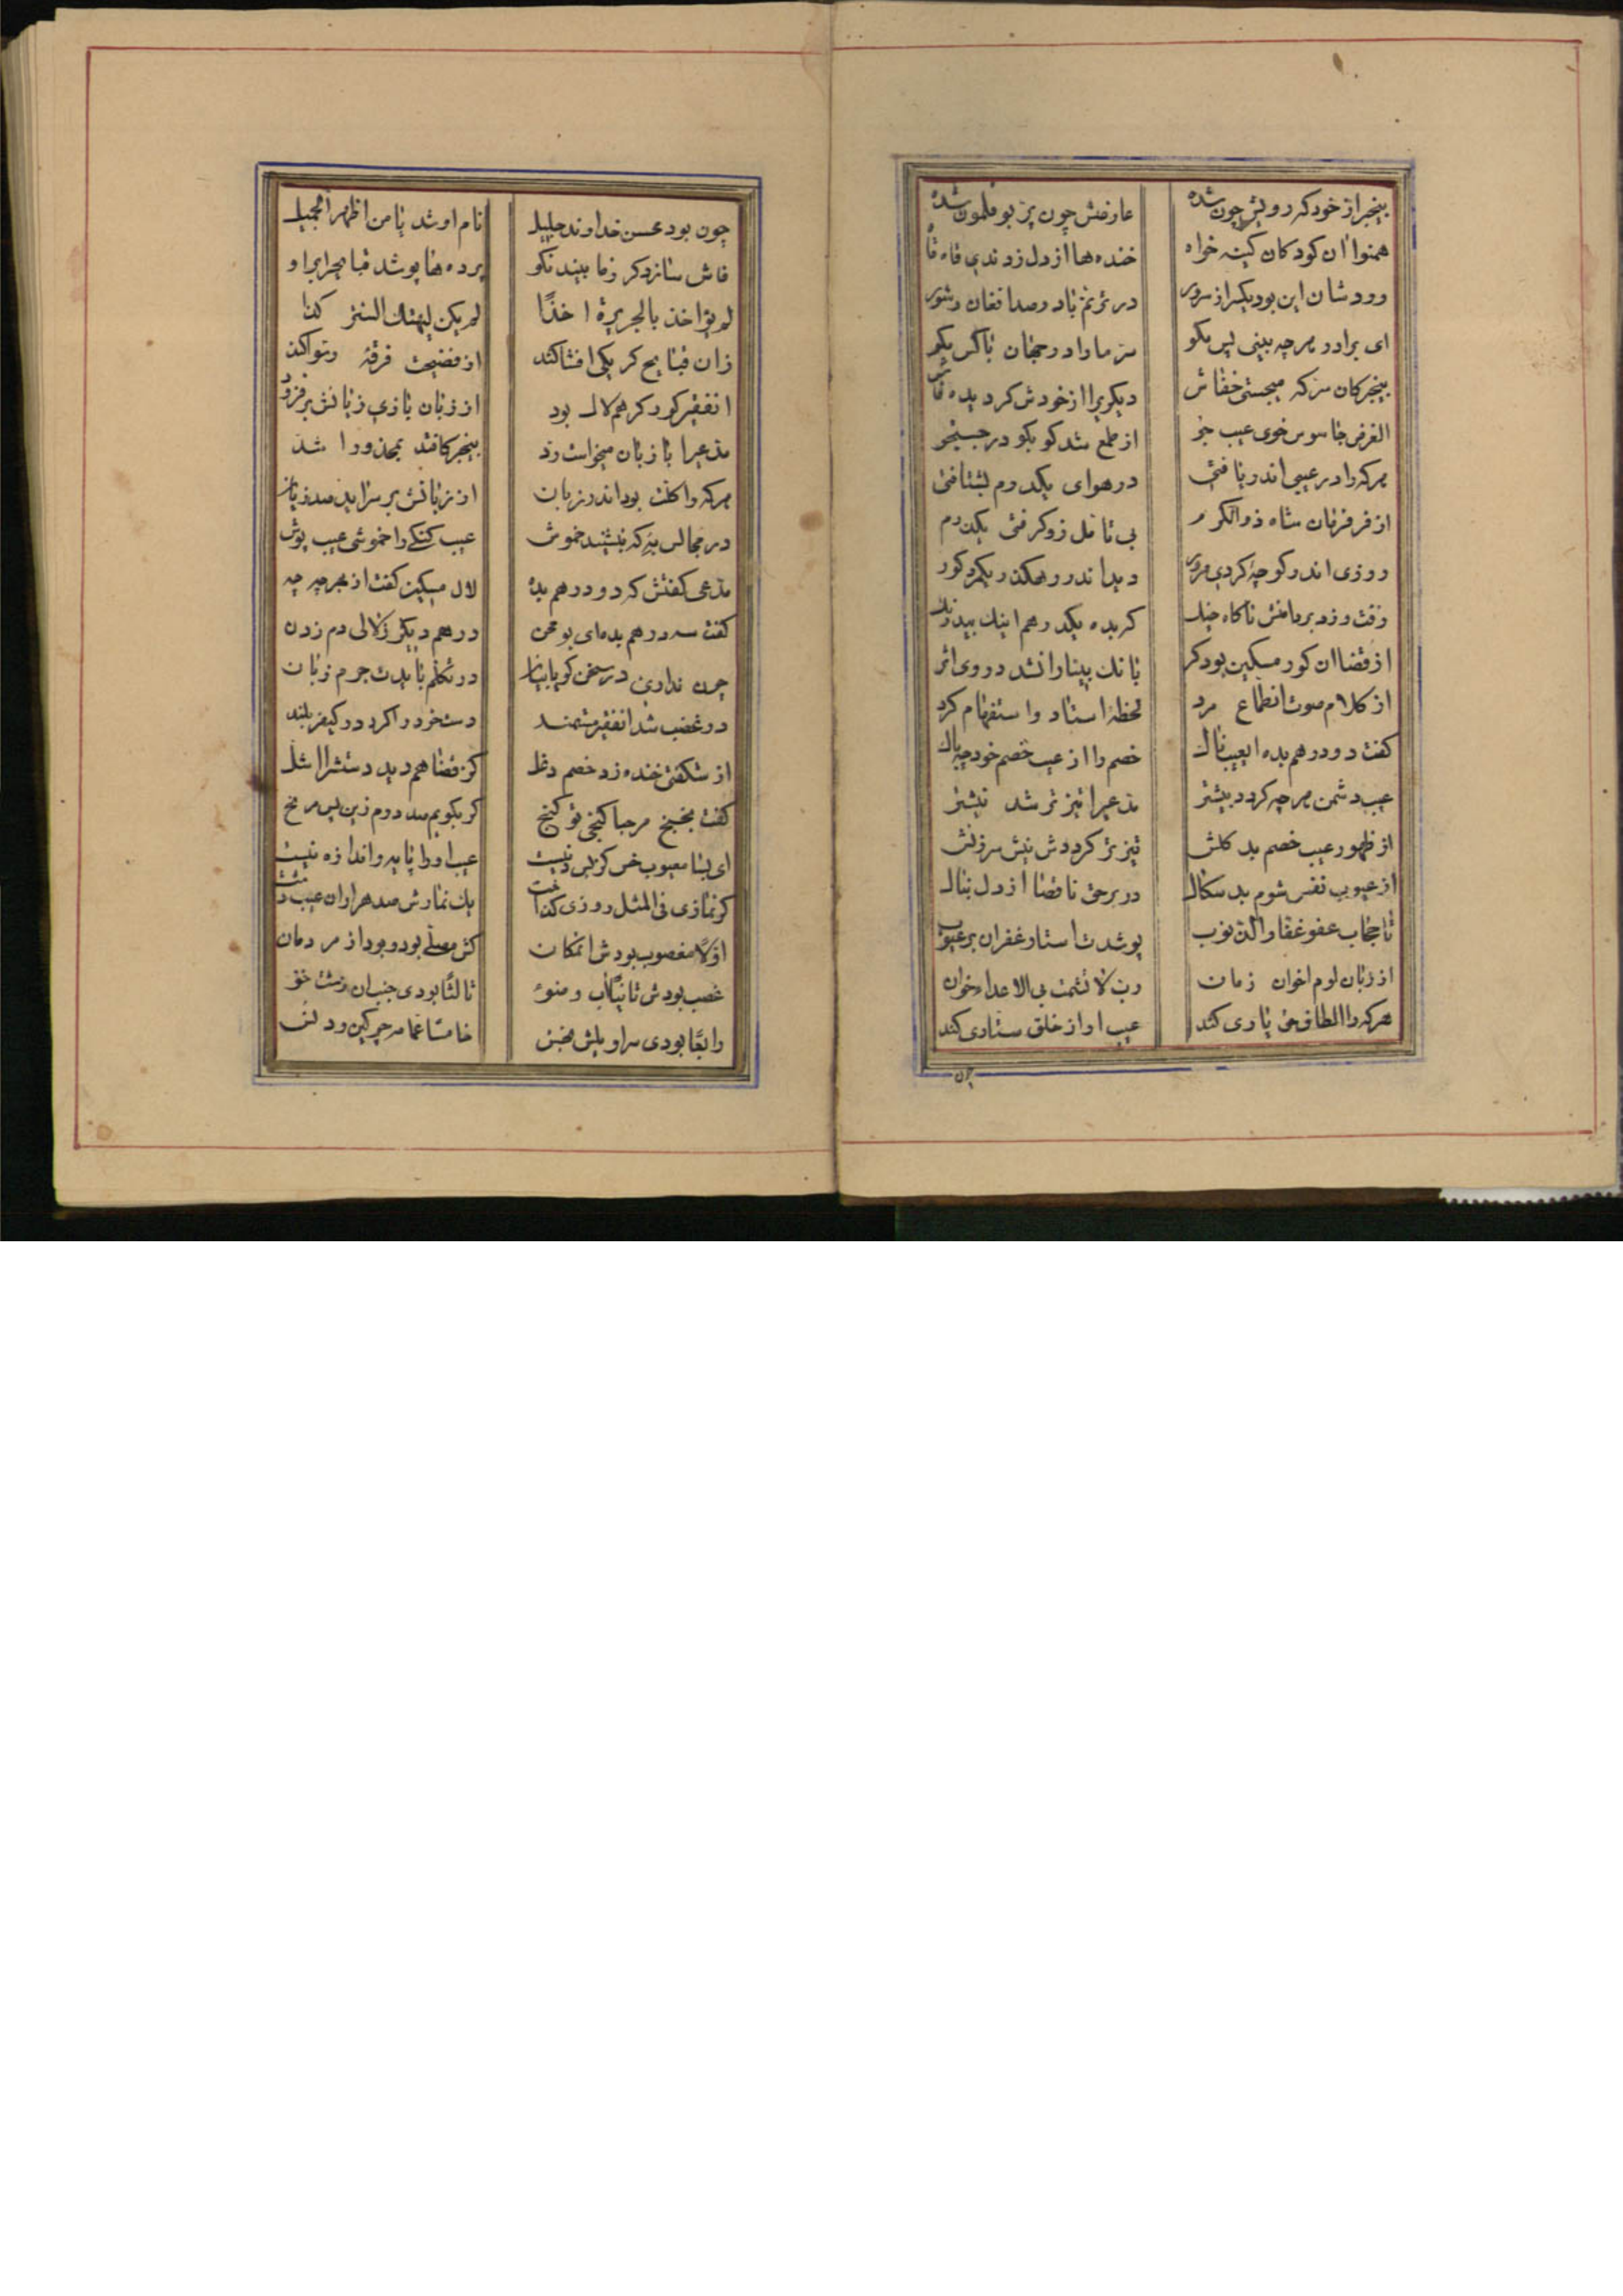 بیخبر از خود که رویش چون شده عارضش چون پر بوقلمون شده
همنوا ان کودکان کینه خواه خنده ها از دل زدندی قاه قاه
وردشان این بود یکسر از سرور در ترنم با دو صد افغان و شور
ای برادر هرچه بینی پس مگو سر ما را در جهان با کس مگو
بیخبر کان سر که میجستی خفاش دیگریرا از خودش گردیده فاش
الغرض جاسوس خوی عیب جو از طمع شد کو بکو در جستجو
هرکه را در عیبی اندر یافتی در هوای یکدرم بشتافتی
از فر فرمان شاه ذو الکرم بی تامل زو گرفتی یکدرم
روزی اندر کوچهٔ کردی مرور دید اندر رهگذر یکمرد کور
رفت و زد بر دامنش ناگاه چنگ که بده یکدرهم اینک بیدرنگ
از قضا ان کور مسکین بود کر بانک بینا را نشد در وی اثر
از کلام صوت انطماع مرد لحظهٔ استاد و استفهام کرد
گفت دو درهم بده ایعیبناک خصم را از عیب خصم خود چه باک
عیب دشمن هرچه گردد بیشتر مدعیرا تیزتر شد نیشتر
از ظهور عیب خصم بد کنش تیزتر کردش نیش سرزنش
از عیوب نفس شوم بد سکال در بر حق ناقضا از دل بنال
تا حجاب عفو غفار الذنوب پوشدت استار غفران بر عیوب
از زبان لوم اخوان زمان رب لا تشمت بی الاعداء خوان
هرکه را الطاف حق یاری کند عیب او از خلق ستاری کند
چون
چون بود محسن خداوند جلیل نام او شد یا من اظهر الجمیل
فاش سازد گر زما بیند نکو پرده ها پوشد قبایح را بر او
لم یؤاخذ بالجریرة اخذا لم یکن لیهتک الستر کذا
زان قبایح گر یکی افشا کند از فضیحت فرقهٔ رسوا کند
انفقیر کور کر هم لال بود از زبان بازی زبانش بر فزود
مدعیرا با زبان میخواست زد بیخبر کافتد بمحذور اشد
هرکه را لکنت بود اندر زبان از زبانش بر سر اید صد زیان
در مجالس به که بنشیند خموش عیب گنگی را خموشی عیب پوش
مدعی گفتش که دو درهم بده لال مسکین گفت از بهر چه چه
گفت سه درهم بده ای بو محن درهم دیگر ز لالی دم زدن
چون نداری در سخن گویا بیان در تکلم بایدت جرم زبان
در غضب شد انفقیر مستمند دست خود را کرد در کیفر بلند
از شگفتی خنده زد خصم دغل کز قضا هم دید دستش را اشل
گفت بخبخ مرحبا گنجی تو گنج گر بگویم صد درم زین پس مرنج
ای بسا معیوب خس کز پس زنیست عیب او را پایه و اندازه نیست
گر نمازی فی المثل روزی گذاشت یک نمازش صد هزاران عیب داشت
اولا مغصوب بودش انمکان کش مصلی بود و بود از مردمان
غصب بودش ثانیا آب وضوء ثالثا بودی جنب ان زشت خو
رابعا بودی سراویلش نجس خامسا عمامه چرکین و دنس